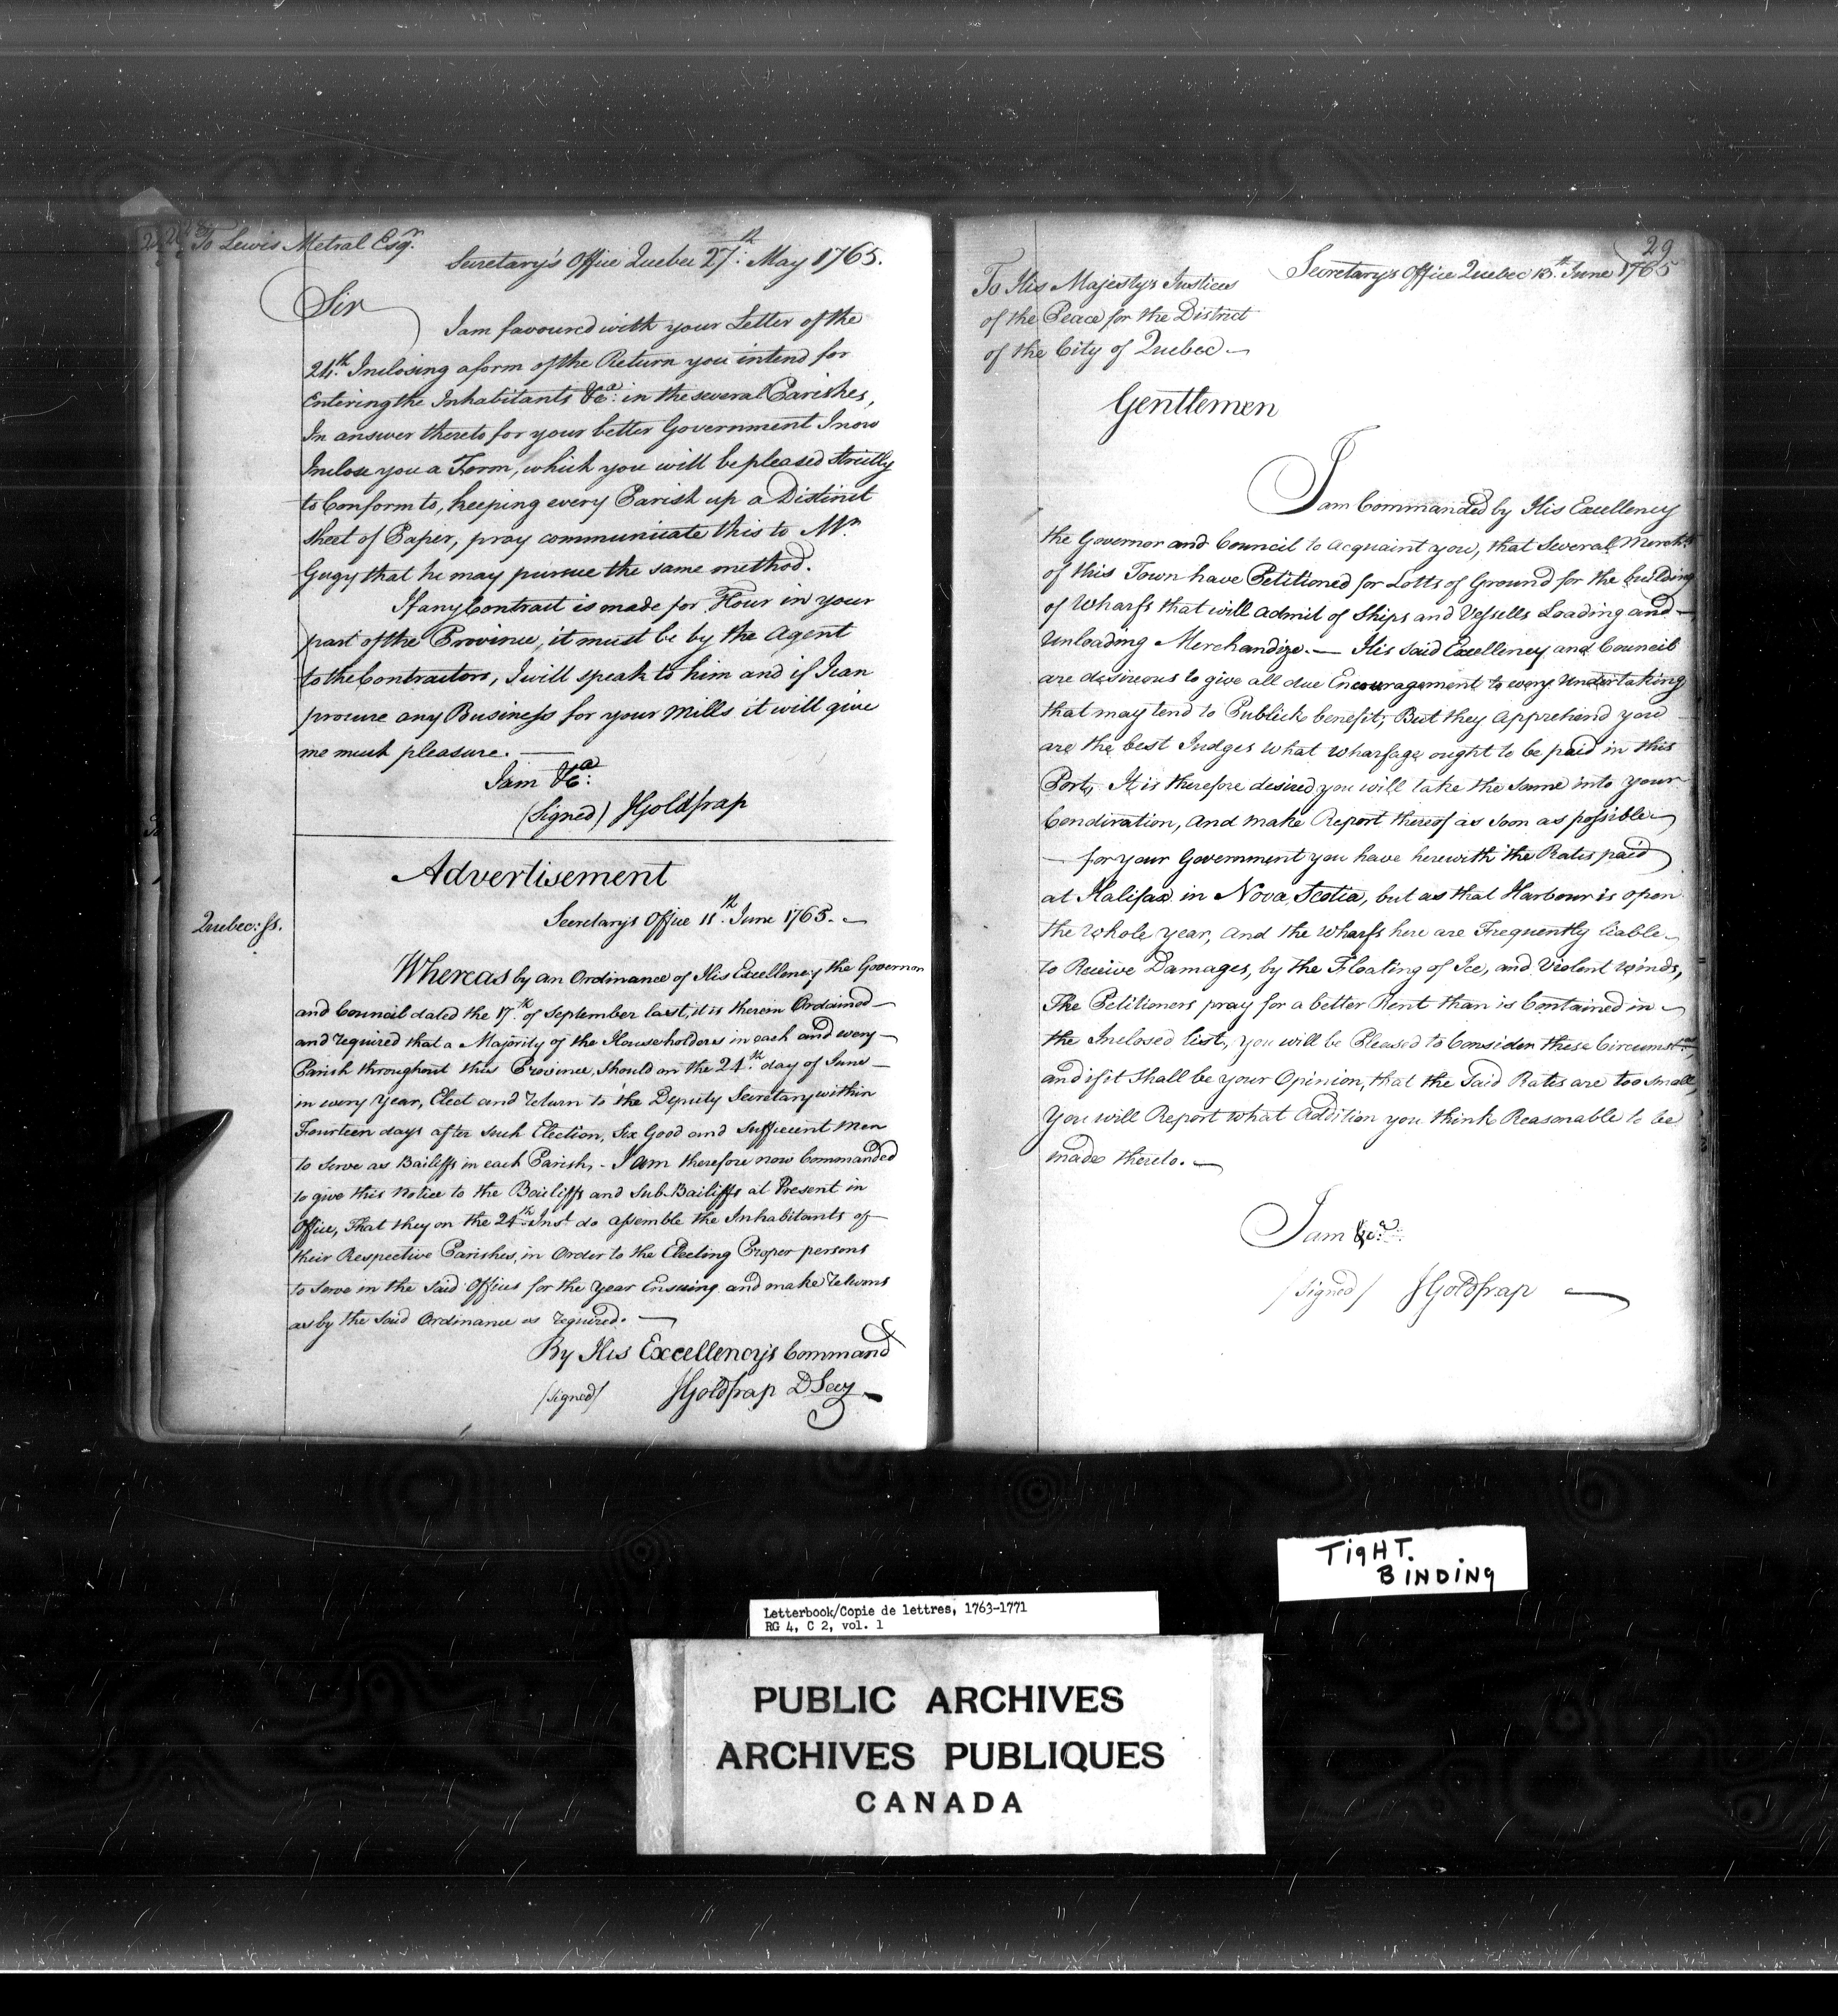 To Lewis Metral Esqr.
Secretary's Office Quebec 27th. May 1765.
Sir
I am favoured with your Letter of the
24th. Inclosing a form of the Return you intend for
Entering the Inhabitants &ca: in the several Parishes,
In answer thereto for your better Government I now
Inclose you a Form, which you will be pleased strictly
to Conform to, keeping every Parish up a Distinct
sheet of Paper, pray communicate this to Mr.
Gugy that he may pursue the same method.
If any Contract is made for Flour in your
part of the Province, it must be by the Agent
to the Contractors, I will speak to him and if I can
procure any Business for your Mills it will give
me much pleasure. —
I am &ca:
(Signed) JGoldfrap
Advertisement
Secretary's Office 11th. June 1765. —
Quebec: ss.
Whereas by an Ordinance of His Excellency the Governor
and Council dated the 17th. of September last, it is therein Ordained —
and required that a Majority of the Householders in each and every —
Parish throughout this Province, Should on the 24th. day of June —
in every Year, Elect and return to the Deputy Secretary within
Fourteen days after such Election, Six Good and Sufficient Men
to Serve as Bailiffs in each Parish, - I am therefore now Commanded
to give this Notice to the Bailiffs and Sub-Bailiffs at Present in
Office, That they on the 24th. Inst do assemble the Inhabitants of —
their Respective Parishes, in Order to the Electing Proper persons
to Serve in the Said Offices for the Year Ensuing and make returns
as by the Said Ordinance is required. —
By His Excellency's Command
/signed/ JGoldfrap D Secy —
29
Secretarys Office Quebec 13th. June 1765
To His Majestys Justices
of the Peace for the District
of the City of Quebec —
Gentlemen
I am Commanded by His Excellency
the Governor and Council to acquaint you, that Several Merchts
of this Town have Petitioned for Lotts of Ground for the building
of Wharfs that will admit of Ships and Vessells Loading and —
Unloading Merchandize. — His Said Excellency and Council
are desireous to give all due Encouragement to every Undertaking
that may tend to Publick benefit; But they Apprehend you
are the best Judges what Wharfage ought to be paid in this
Port, It is therefore desired you will take the Same into your
Condiration, and make Report thereof as Soon as possible —
— for your Government you have herewith the Rates paid
at Halifax in Nova Scotia, but as that Harbour is open
the whole year, and the Wharfs here are Frequently liable —
to Receive Damages, by the Floating of Ice, and Violent Winds,
The Petitioners pray for a better Rent than is Contained in —
the Inclosed list, you will be Pleased to Consider these Circumstces,
and if it Shall be your Opinion, that the Said Rates are too small,
You will Report what Addition you think Reasonable to be
made thereto. —
I am &ca:
/signed/ JGoldfrap —
TIGHT.
BINDING
Letterbook/Copie de lettres, 1763-1771
RG 4, C 2, vol. 1
PUBLIC ARCHIVES
ARCHIVES PUBLIQUES
CANADA